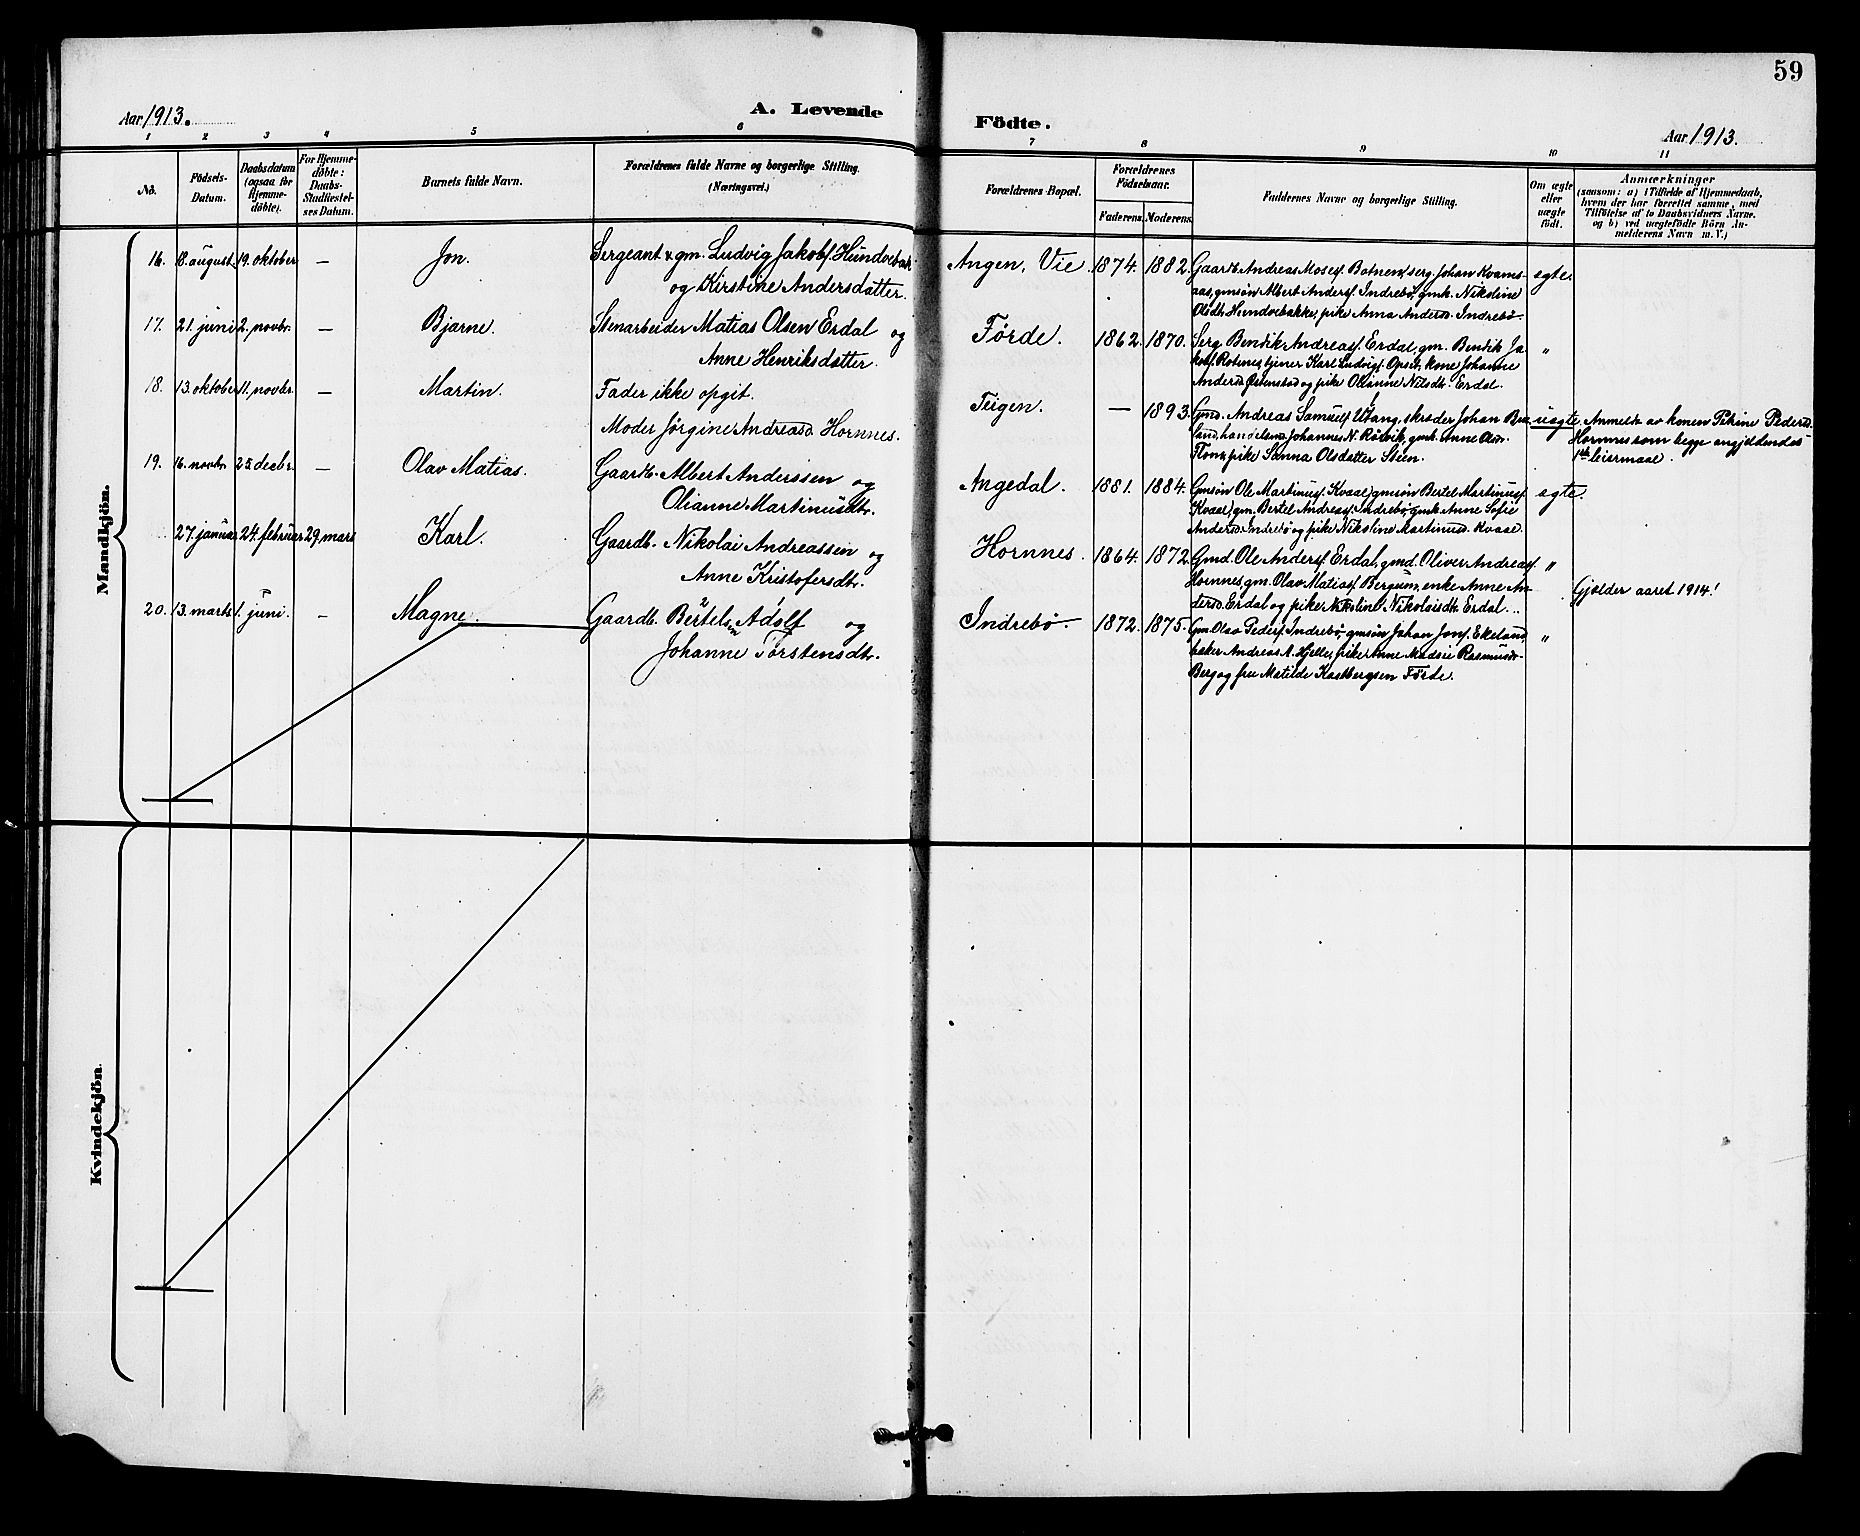 59
A. Levende Födte.
Aar 1913.
Aar 1913.
1 2 3 4 5 6 7 8 9 10 11
No.
Födsels-Datum.
Daabsdatum (ogsaa for Hjemme-döbte).
For Hjemme-döbte: Daabs-Stadfæstel-ses Datum.
Barnets fulde Navn.
Forældrenes fulde Navne og borgerlige Stilling. (Næringsvei.)
Forældrenes Bopæl.
Forældrenes Födselsaar.
Faderens. Moderens.
Faddernes Navne og borgerlige Stilling.
Om ægte eller uægte födt.
Anmærkninger
(saasom: a) i Tilfælde af Hjemmedaab,
hvem der har forrettet samme, med
Tilföielse af to Daabsvidners Navne.
og b) ved uægtefödte Börn An-
melderens Navn m. V.)
Mandkjön.
16. 8. august. 19. oktober — Jon. Sergeant & gm. Ludvig Jakobs. Hundvebak
og Kirstine Andersdatter.
Angen, Vie 1874. 1882. Gaardb. Andreas Moses. Botnen, serg. Johan Kvams-
aas, gmsøn Albert Anders. Indrebø, gmk. Nikoline
Olsdtr. Hundvebakke, pike Anna Andersd. Indrebø.
egte.
17. 21. juni 2. novbr. — Bjarne. Stenarbeider Matias Olsen Erdal og
Anne Henriksdatter.
Førde. 1862. 1870. Serg. Bendik Andreas. Erdal, gm. Bendik Ja-
kobs. Rotnes, tjener Karl Ludvigs. Opset, kone Johanne
Andersd. Østenstad og pike Olianne Nilsdt. Erdal.
"
18. 13. oktober 11. novbr. — Martin. Fader ikke opgit.
Moder Jørgine Andreasd. Hornnes.
Teigen. — 1893. Gmd. Andreas Samuels. Utang, skræder Johan Bru-
land, handelsm. Johannes N. Rødvik, gmk. Anne Olsd.
Flone, pike Sanna Olsdatter Steen.
uegte Anmeldt av konen Petrine Pedersd.
Hornnes som begge angjældendes
1ste leiermaal.
19. 16. novbr. 25. decbr. — Olav Matias. Gaardb. Albert Anderssen og
Olianne Martinusdtr.
Angedal. 1881. 1884. Gmsøn Ole Martinus. Kvaal, gmsøn Bertel Martinus.
Kvaal, gm. Bertel Andreas. Indrebø, gmk. Anne Sofie
Andersd. Indrebø og pike Nikoline Martinusd. Kvaal.
egte.
27. januar 24. februar 29. mars Karl. Gaardb. Nikolai Andreassen og
Anne Kristofersdtr.
Hornnes. 1864. 1872. Gmd. Ole Anders. Erdal, gmd. Oliver Andreas.
Hornnes, gm. Olav Matias. Bergum, enke Anne An-
dersd. Erdal og pike Nikoline Nikolaisdt. Erdal.
" Gjælder aaret 1914!
20. 13. marts 1. juni. — Magne. Gaardb. Bertelsen Adolf og
Johanne Torstensdtr.
Indrebø 1872. 1875. Gm. Olav Peders. Indrebø, gmsøn Johan Jons. Ekeland,
baker Andreas A. Hjelle, pike Anne Madsie Rasmusd.
Berg og frue Matilde Kastbergsen Førde.
"
Kvindekjön.